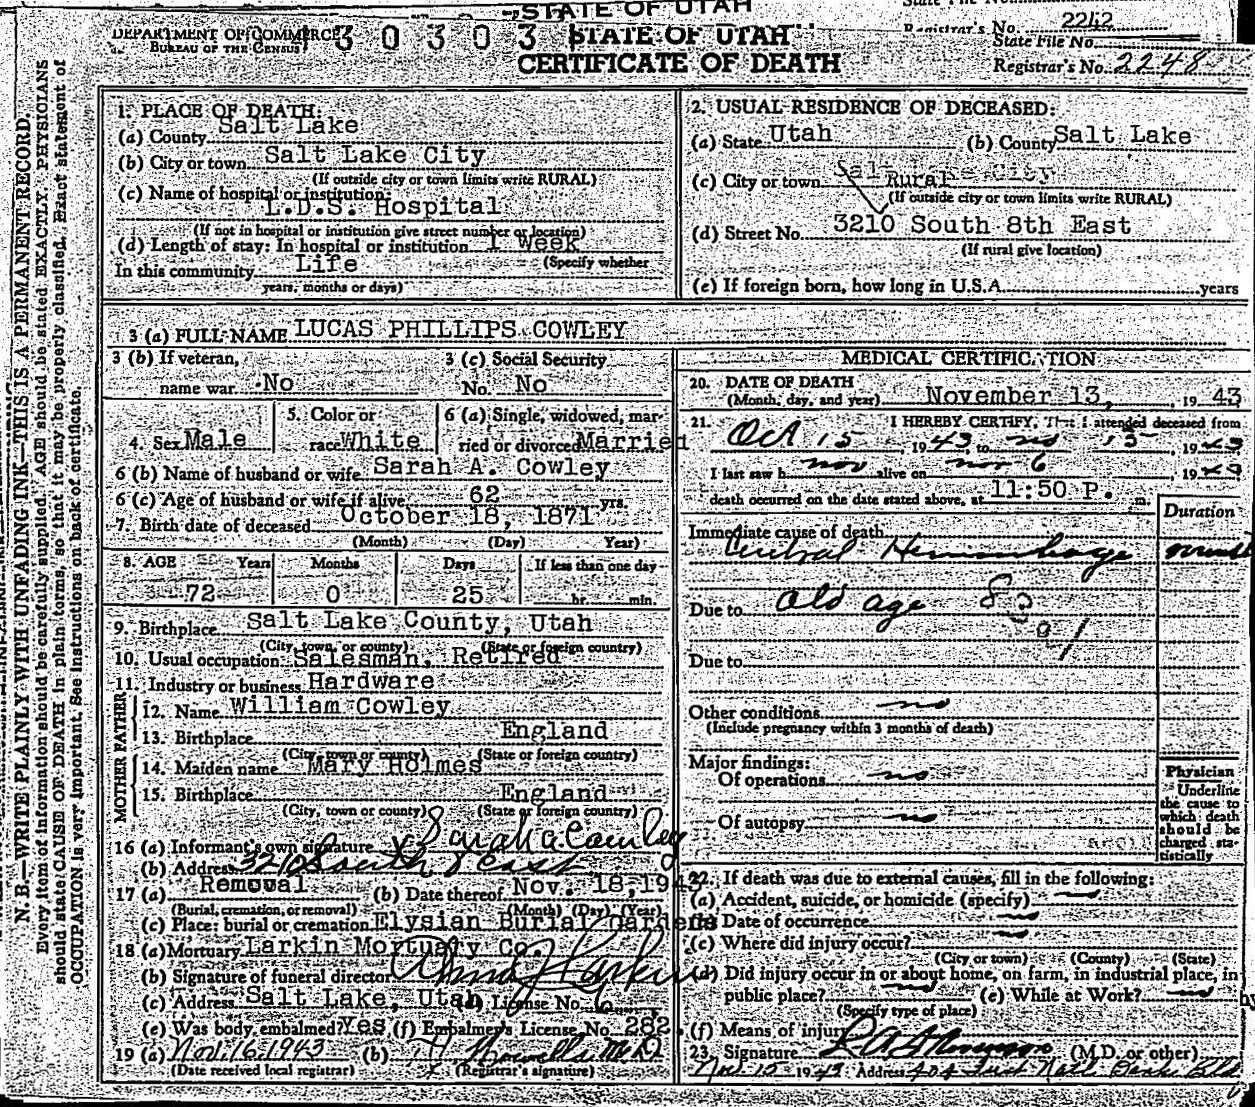 STATE OF UTAH
State File No.
Registrar's No. 2242
DEPARTMENT OF COMMERCE
BUREAU OF THE CENSUS
30303
STATE OF UTAH
CERTIFICATE OF DEATH
State File No.
Registrar's No. 2248
N. B.—WRITE PLAINLY WITH UNFADING INK—THIS IS A PERMANENT RECORD.
Every item of information should be carefully supplied. AGE should be stated EXACTLY. PHYSICIANS
should state CAUSE OF DEATH in plain terms, so that it may be properly classified. Exact statement of
OCCUPATION is very important. See instructions on back of certificate.
1. PLACE OF DEATH:
(a) County Salt Lake
(b) City or town Salt Lake City
(If outside city or town limits write RURAL)
(c) Name of hospital or institution:
L.D.S. Hospital
(If not in hospital or institution give street number or location)
(d) Length of stay: In hospital or institution 1 Week
(Specify whether
In this community Life
years, months or days)
2. USUAL RESIDENCE OF DECEASED:
(a) State Utah (b) County Salt Lake
(c) City or town Rural
(If outside city or town limits write RURAL)
(d) Street No. 3210 South 8th East
(If rural give location)
(e) If foreign born, how long in U.S.A. years
3 (a) FULL NAME LUCAS PHILLIPS COWLEY
3 (b) If veteran,
name war No
3 (c) Social Security
No. No
4. Sex Male
5. Color or
race White
6 (a) Single, widowed, mar-
ried or divorced Married
6 (b) Name of husband or wife Sarah A. Cowley
6 (c) Age of husband or wife if alive 62 yrs.
7. Birth date of deceased October 18, 1871
(Month) (Day) Year)
8. AGE Years Months Days If less than one day
72 0 25 hr. min.
9. Birthplace Salt Lake County, Utah
(City, town, or county) (State or foreign country)
10. Usual occupation Salesman, Retired
11. Industry or business Hardware
FATHER
12. Name William Cowley
13. Birthplace England
(City, town or county) (State or foreign country)
MOTHER
14. Maiden name Mary Holmes
15. Birthplace England
(City, town or county) (State or foreign country)
16 (a) Informant's own signature x Sarah A Cowley
(b) Address 3210 South 8 East
17 (a) Removal (b) Date thereof Nov. 18, 1943
(Burial, cremation, or removal) (Month) (Day) (Year)
(c) Place: burial or cremation Elysian Burial Gardens
18 (a) Mortuary Larkin Mortuary Co.
(b) Signature of funeral director Larkin
(c) Address Salt Lake, Utah (d) License No. 6
(e) Was body embalmed? Yes (f) Embalmer's License No. 282
19 (a) Nov. 16, 1943 (b) M.D.
(Date received local registrar) (Registrar's signature)
MEDICAL CERTIFICATION
20. DATE OF DEATH
(Month, day, and year) November 13, 1943
21. I HEREBY CERTIFY, That I attended deceased from
Oct 15, 1943, to Nov 13, 1943
I last saw h alive on Nov 6 1943
death occurred on the date stated above, at 11:50 P. m.
Duration
Immediate cause of death
Cerebral Hemorrhage
Due to old age
Due to
Other conditions no
(Include pregnancy within 3 months of death)
Major findings:
Of operations no
Of autopsy no
Physician
Underline
the cause to
which death
should be
charged sta-
tistically
22. If death was due to external causes, fill in the following:
(a) Accident, suicide, or homicide (specify) no
(b) Date of occurrence no
(c) Where did injury occur? no
(City or town) (County) (State)
(d) Did injury occur in or about home, on farm, in industrial place, in
public place? no (e) While at Work? no
(Specify type of place)
(f) Means of injury
23. Signature (M.D. or other)
Nov 15 1943 Address 404 First Natl. Bank Bld